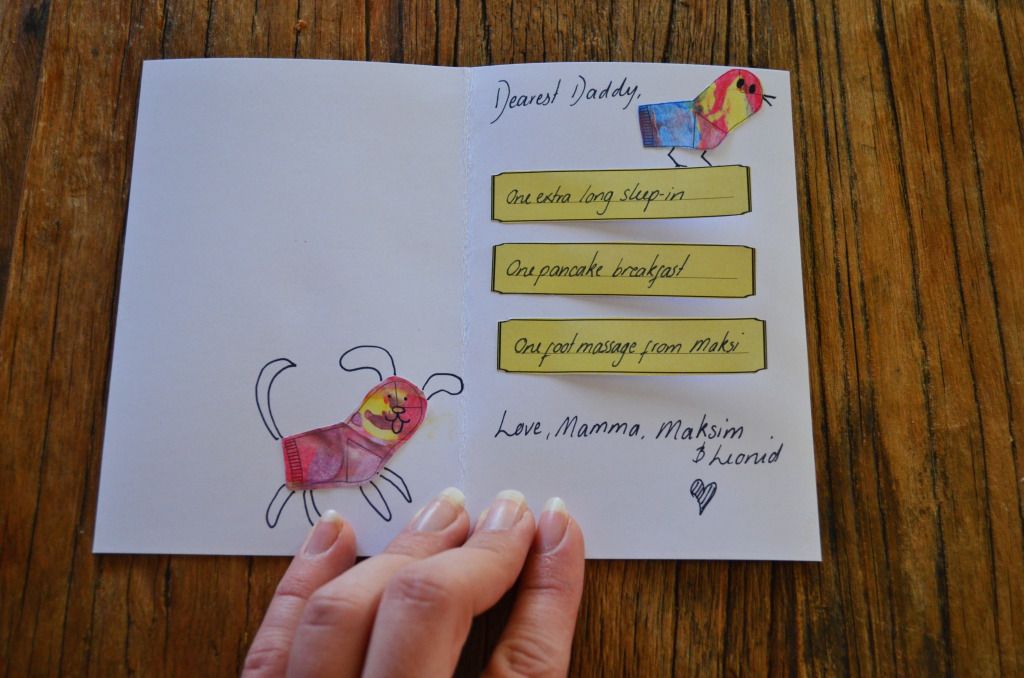 Dearest Daddy,
One extra long sleep-in
One pancake breakfast
One foot massage from Maksi
Love, Mamma, Maksim
& Leonid